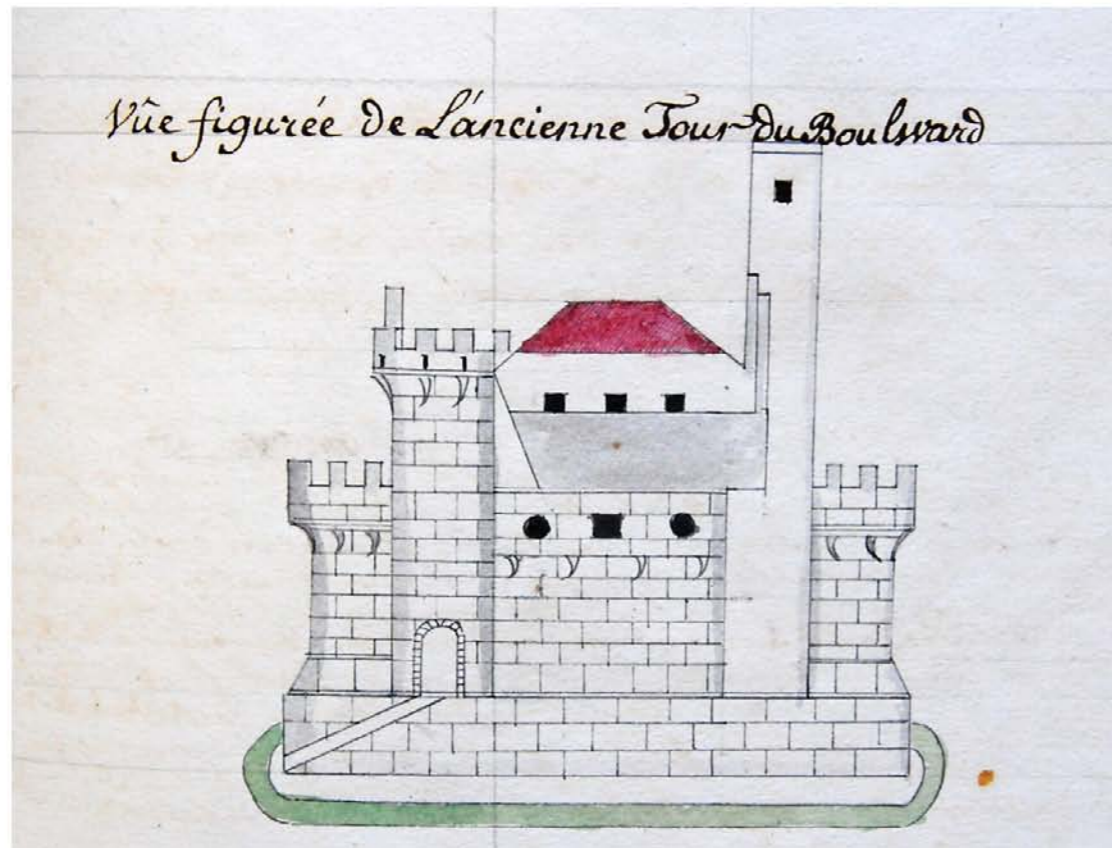 Vûe figurée de L'ancienne Tour du Boulward